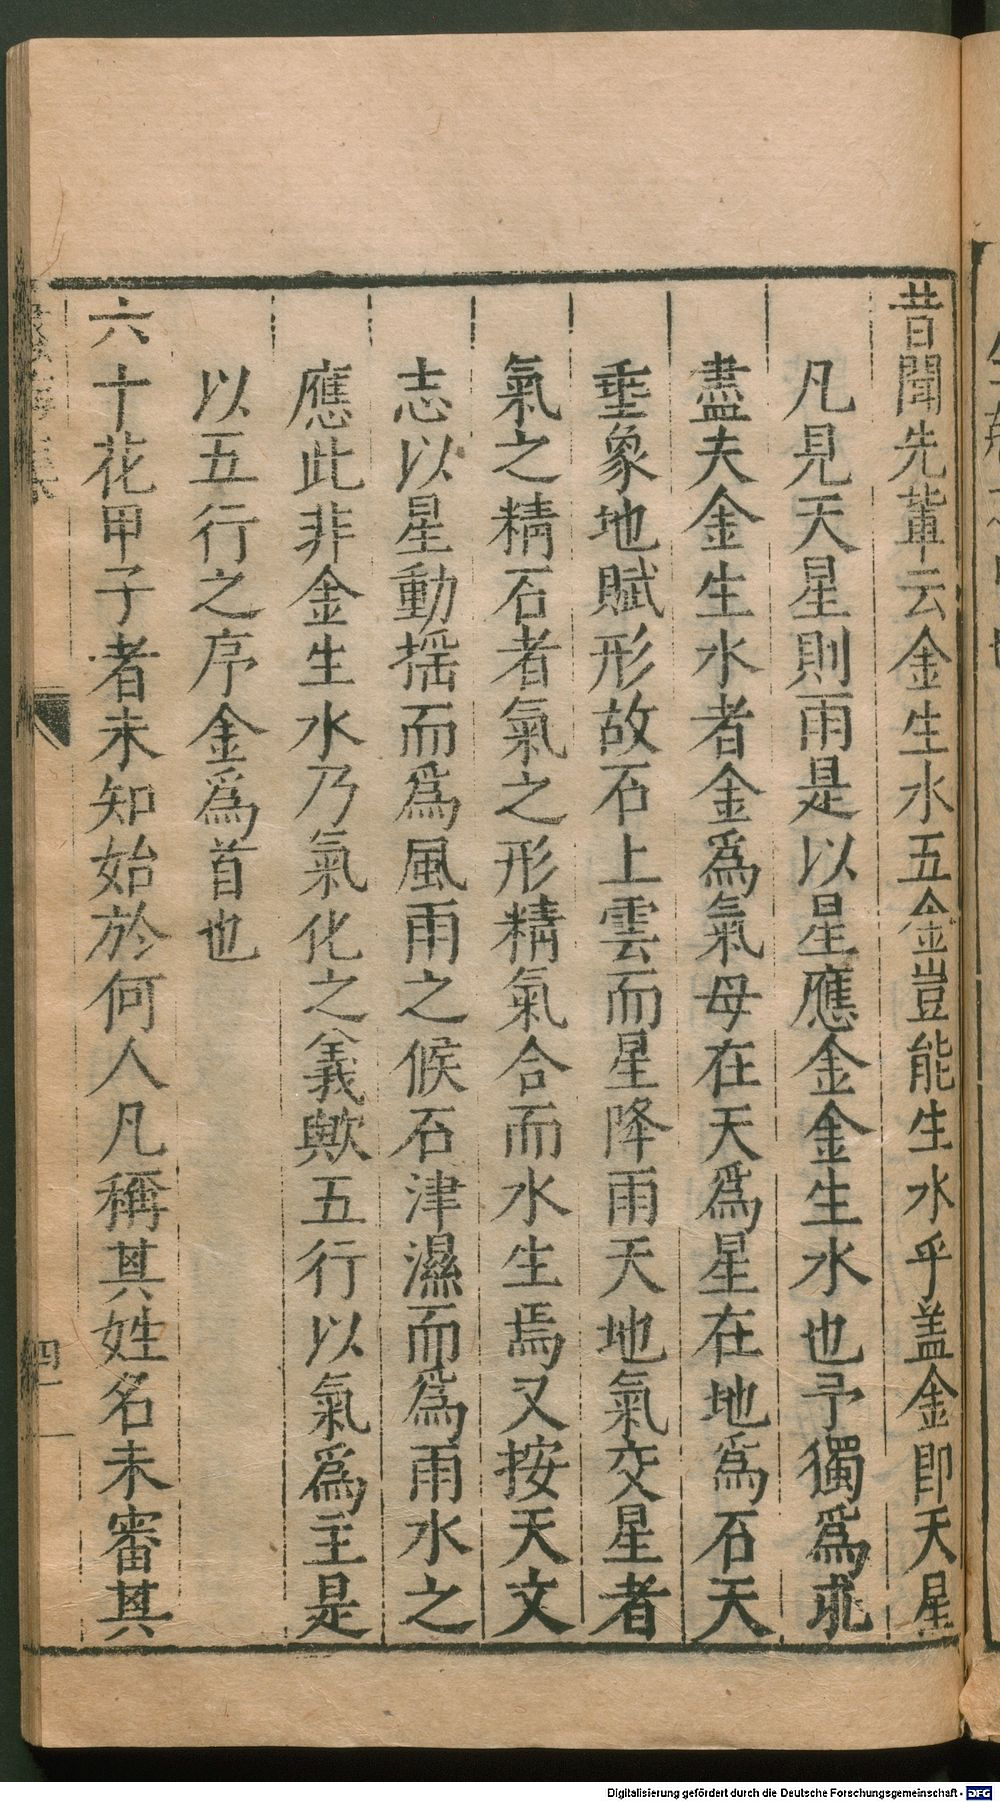 昔聞先軰云金生水五金豈能生水乎盖金即天星
凡見天星則雨是以星應金金生水也予獨爲未
盡夫金生水者金爲氣母在天爲星在地爲石天
垂象地賦形故石上雲而星降雨天地氣交星者
氣之精石者氣之形精氣合而水生焉又按天文
志以星動揺而爲風雨之候石津濕而爲雨水之
應此非金生水乃氣化之義歟五行以氣爲主是
以五行之序金爲首也
六十花甲子者未知始於何人凡稱其姓名未審其
四
Digitalisierung gefördert durch die Deutsche Forschungsgemeinschaft - DFG